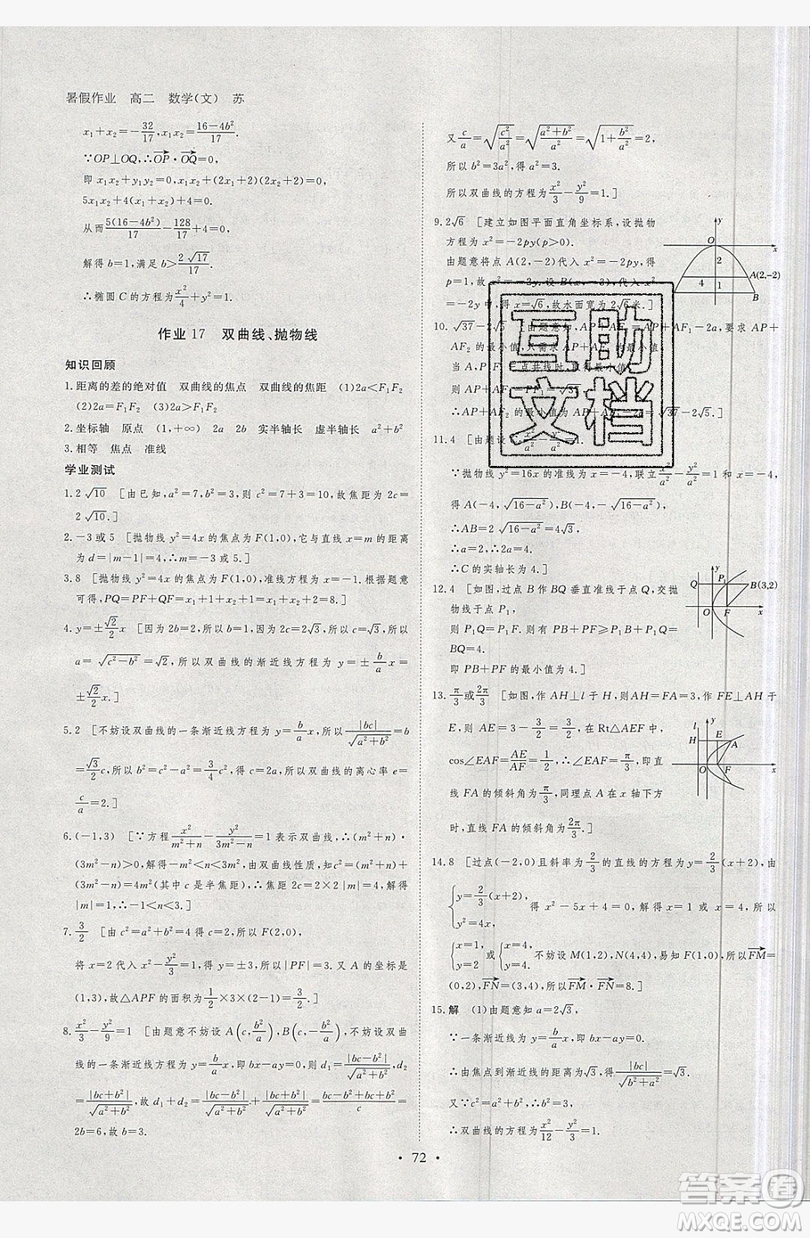 暑假作业 高二 数学(文) 苏
x₁+x₂=-32/17, x₁x₂=(16-4b²)/17.
∵OP⊥OQ,∴OP·OQ=0,
即 x₁x₂+y₁y₂=0,2x₁x₂+2(x₁+x₂)+4=0,
5x₁x₂+2(x₁+x₂)+4=0.
从而 5(16-4b²)/17-128/17+4=0,
解得 b=1,满足 b>2√17/17.
∴椭圆 C 的方程为 x²/4+y²=1.
作业 17 双曲线、抛物线
知识回顾
1.距离的差的绝对值 双曲线的焦点 双曲线的焦距 (1)2a<F₁F₂
(2)2a=F₁F₂ (3)2a>F₁F₂
2.坐标轴 原点 (1,+∞) 2a 2b 实半轴长 虚半轴长 a²+b²
3.相等 焦点 准线
学业测试
1.2√10 [由已知,a²=7,b²=3,则 c²=7+3=10,故焦距为 2c=
2√10.]
2.-3 或 5 [抛物线 y²=4x 的焦点为 F(1,0),它与直线 x=m 的距离
为 d=|m-1|=4,∴m=-3 或 5.]
3.8 [抛物线 y²=4x 的焦点为 F(1,0),准线为 x=-1.根据题意
可得,PQ=PF+QF=x₁+1+x₂+1=x₁+x₂+2=8.]
4.y=±√2/2 x [因为 2b=2,所以 b=1,因为 2c=2√3,所以 c=√3,所以
a=√(c²-b²)=√2,所以双曲线的渐近线方程为 y=±b/a x=
±√2/2 x.]
5.2 [不妨设双曲线的一条渐近线方程为 y=b/a x,所以 |bc|/√(a²+b²)=
√3/2 c,所以 b²=c²-a²=3/4 c²,得 c=2a,所以双曲线的离心率 e=
c/a=2.]
6.(-1,3) [∵方程 x²/(m²+n)-y²/(3m²-n)=1 表示双曲线,∴(m²+n)·
(3m²-n)>0,解得-m²<n<3m²,由双曲线性质,知 c²=(m²+n)+
(3m²-n)=4m²(其中 c 是半焦距),∴焦距 2c=2×2|m|=4,解得
|m|=1,∴-1<n<3.]
7.3/2 [由 c²=a²+b²=4 得 c=2,所以 F(2,0),
将 x=2 代入 x²-y²/3=1,得 y=±3,所以|PF|=3.又 A 的坐标是
(1,3),故△APF 的面积为 1/2×3×(2-1)=3/2.]
8.x²/3-y²/9=1 [由题意不妨设 A(c,b²/a),B(c,-b²/a),不妨设双曲
线的一条渐近线方程为 y=b/a x,即 bx-ay=0,则 d₁=|bc-b²|/√(a²+b²),d₂=
|bc+b²|/√(a²+b²),故 d₁+d₂=|bc-b²|/√(a²+b²)+|bc+b²|/√(a²+b²)=(bc-b²+bc+b²)/√(a²+b²)=
2b=6,故 b=3.
又 c/a=√(c²/a²)=√((a²+b²)/a²)=√(1+b²/a²)=2,
所以 b²=3a²,得 a²=3.
所以双曲线的方程为 x²/3-y²/9=1.]
9.2√6 [建立如图平面直角坐标系,设抛物
线方程为 x²=-2py(p>0).
由题意将点 A(2,-2)代入 x²=
y x O 2 4 1 A(2,-2) B
互助
文档
∵抛物线 y²=16x 的准线为 x=-4,联立
得 A(-4,√(16-a²)),B(-4,-√(16-a²)),
∴AB=2√(16-a²)=4√3,
∴a=2,∴2a=4.
∴C 的实轴长为 4.]
12.4 [如图,过点 B 作 BQ 垂直准线于点 Q,交抛
物线于点 P₁,
则 P₁Q=P₁F,则有 PB+PF≥P₁B+P₁Q=
BQ=4.
即 PB+PF 的最小值为 4.]
y Q P₁ B(3,2) O F x
13.π/3 或 2π/3 [如图,作 AH⊥l 于 H,则 AH=FA=3,作 FE⊥AH 于
E,则 AE=3-3/2=3/2,在 Rt△AEF 中,
cos∠EAF=AE/AF=1/2,∴∠EAF=π/3,即直
线 FA 的倾斜角为 2π/3,同理点 A 在 x 轴下方
时,直线 FA 的倾斜角为 π/3.]
l y H E A O F x
14.8 [过点(-2,0)且斜率为 2/3 的直线的方程为 y=2/3(x+2),由
{y=2/3(x+2), y²=4x, 得 x²-5x+4=0,解得 x=1 或 x=4,所以
{x=1, y=2 或 {x=4, y=4, 不妨设 M(1,2),N(4,4),易知 F(1,0),所以 FM=
(0,2),FN=(3,4),所以 FM·FN=8.]
15.解 (1)由题意知 a=2√3,
∵一条渐近线为 y=b/a x,即 bx-ay=0,
∴由焦点到渐近线的距离为√3,得 |bc|/√(b²+a²)=√3.
又∵c²=a²+b²,∴b²=3,
∴双曲线的方程为 x²/12-y²/3=1.
• 72 •
答案圈
MXQE.COM